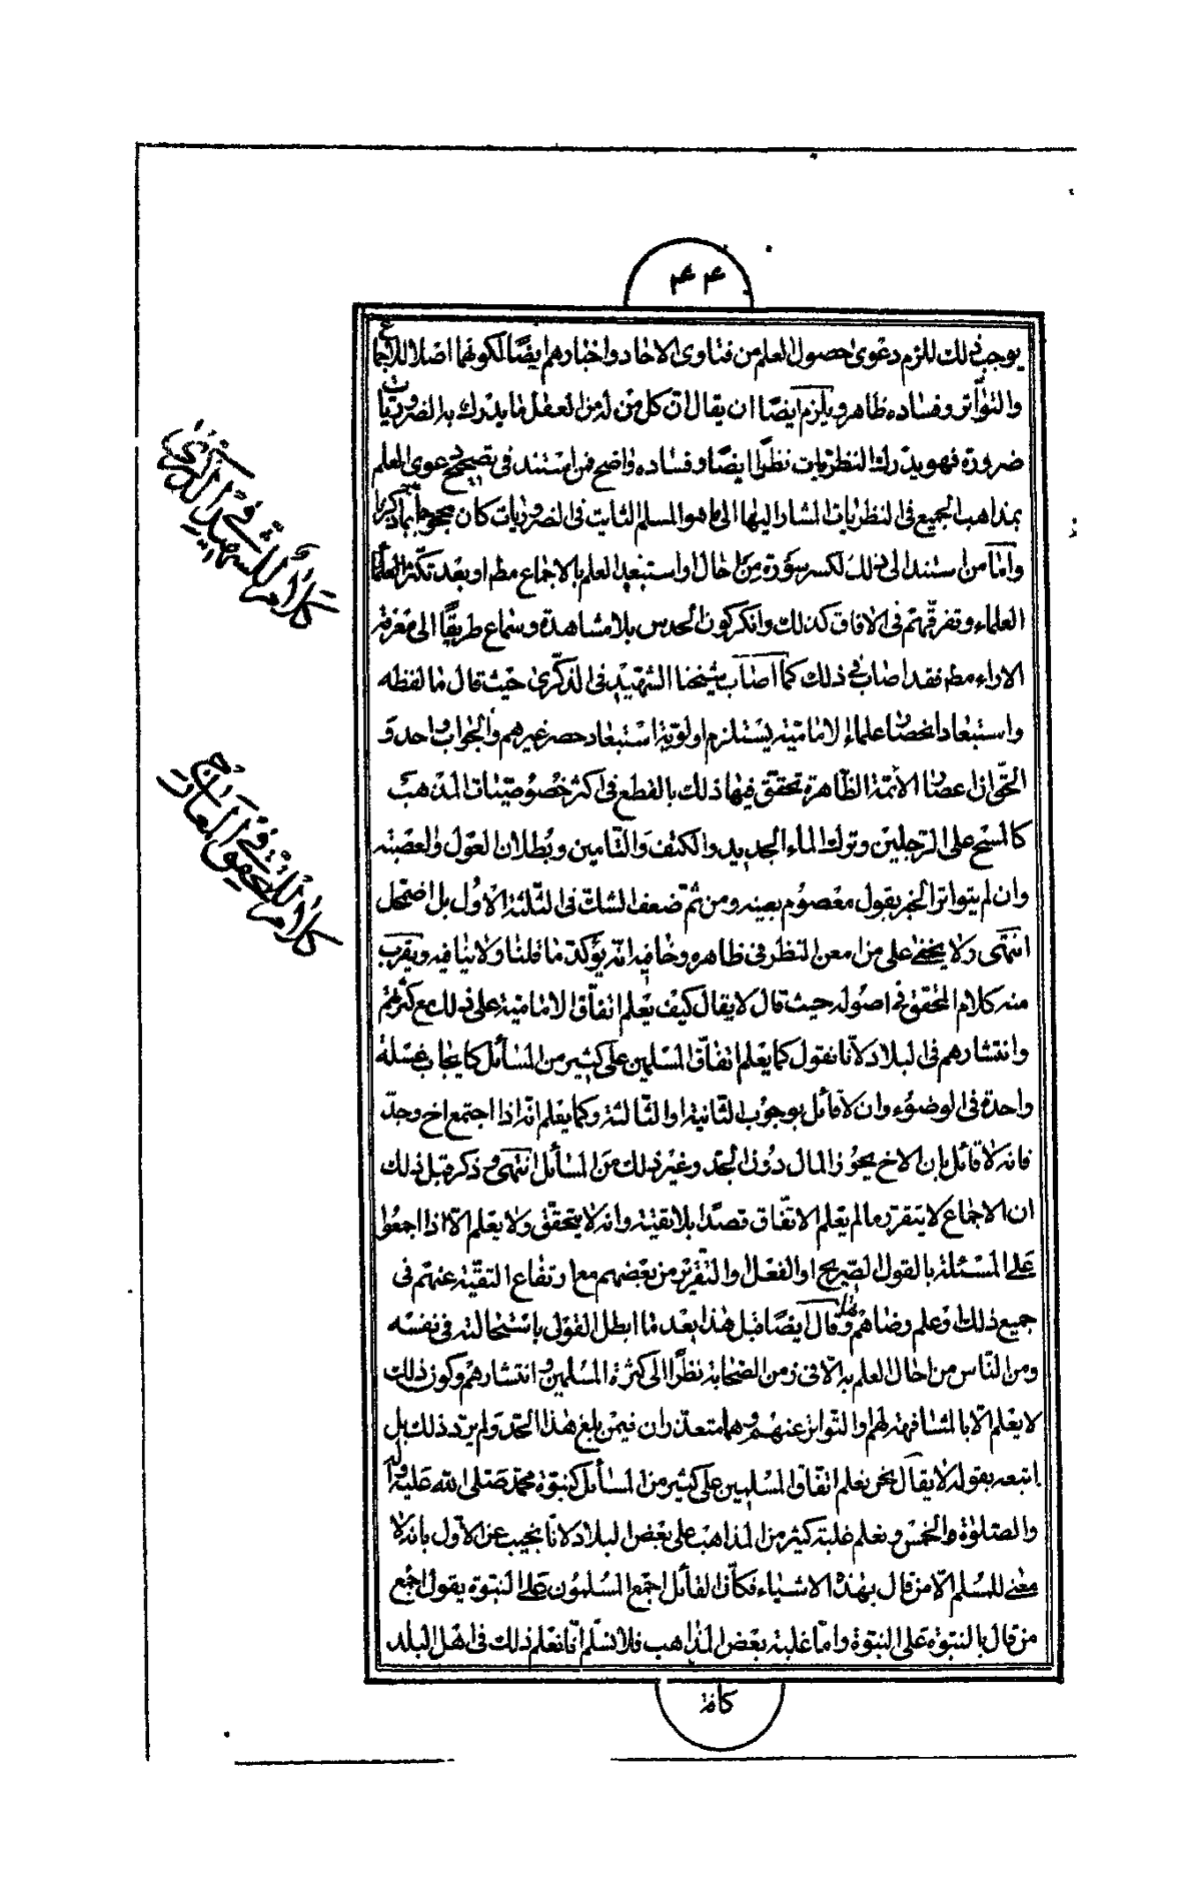 ۴۴
يوجب ذلك للزم دعوى حصول العلم من فتاوى الاحاد واخبارهم ايضًا لكونهما اصلا للاجماع
والتواتر وفساده ظاهر ويلزم ايضا ان يقال ان كل من له من العقل ما يدرك به الضروريات
ضرورة فهو يدرك النظريات نظرًا ايضًا وفساده واضح فمن استند في تصحيح دعوى العلم
بمذاهب الجميع في النظريات المشار اليها الى ما هو المسلم الثابت في الضروريات كان محجوجا بما ذكرنا
وامّا من استند الى ذلك لكسر سورة من احال او استبعد العلم بالاجماع مطم او بعد تكثر العلماء
العلماء وتفرقهم في الافاق كذلك وانكر كون الحدس بلا مشاهدة وسماع طريقًا الى معرفة
الاراء مطم فقد اصاب في ذلك كما اصاب شيخنا الشهيد في الذكرى حيث قال ما لفظه
واستبعاد انحصار علماء الامامية يستلزم اولوية استبعاد حصر غيرهم والجواب واحد و
الحق ان اعصار الأئمة الظاهرة تحقق فيها ذلك بالقطع في اكثر خصوصيات المذهب
كالمسح على الرجلين وترك الماء الجديد والكتف والتامين وبطلان العول والعصبة
وان لم يتواتر الخبر بقول معصوم بعينه ومن ثمّ ضعف الشك في الثلثة الاول بل اضمحل
انتهى ولا يخفى على من امعن النظر في ظاهره وخافيه انه يؤكد ما قلنا ولا ينافيه ويقرب
منه كلام المحقق في اصوله حيث قال لا يقال كيف يعلم اتفاق الامامية على ذلك مع كثرتهم
وانتشارهم في البلاد لأنا نقول كما يعلم اتفاق المسلمين على كثير من المسائل كايجاب غسلة
واحدة في الوضوء وان لا قائل بوجوب الثانية او الثالثة وكما يعلم انه اذا اجتمع اخ وجدّ
فانه لا قائل بان الاخ يحوز المال دون الجد وغير ذلك من المسائل انتهى وذكر قبل ذلك
ان الاجماع لا يتقرر ما لم يعلم الاتفاق قصدًا بلا تقيّة وانه لا يتحقق ولا يعلم الا اذا اجمعوا
على المسئلة بالقول الصريح او الفعل والتقرير من بعضهم مع ارتفاع التقية عنهم في
جميع ذلك وعلم رضاهم وقال ايضًا قبل هذا بعد ما ابطل القول باستحالته في نفسه
ومن الناس من احال العلم به الّا في زمن الصحابة نظرًا الى كثرة المسلمين وانتشارهم وكون ذلك
لا يعلم الا بالمشافهة لهم والتواتر عنهم وهما متعذران فيمن بلغ هذا الحد ولم يرد ذلك بل
اتبعه بقوله لا يقال نحن نعلم اتفاق المسلمين على كثير من المسائل كنبوة محمد صلى الله عليه وآله
والصلوة والخمس ونعلم غلبة كثير من المذاهب على بعض البلاد لانا نجيب عن الاول بانه لا
معنى للمسلم الا من قال بهذه الاشياء فكأن القائل اجمع المسلمون على النبوة يقول اجمع
من قال بالنبوة على النبوة وامّا غلبة بعض المذاهب فلا نسلم انا نعلم ذلك في اهل البلد
كافة
كلام للشهيد في الذكرى
كلام للمحقق في المعارج